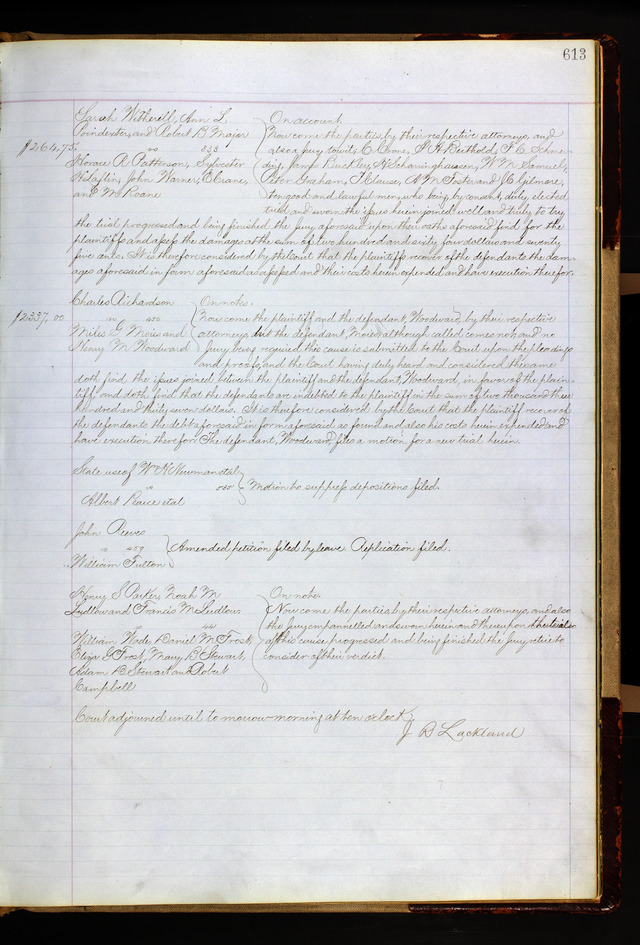 613
Sarah Witherell, Ann L.
Poindexter, and Robert B. Major
$264,75.
vs 838
Horace R. Patterson, Sylvester
H. Laflin, John Warner, E Crane,
and M Roane
On account.
Now come the parties by their respective attorneys, and
also a jury, towit; C. Coons, F. A. Berthold, F. C.
ding, James Buckley, A. Scharinghausen, W. M. Samuels,
Peter Graham, T. Clause, A. M. Foster and J. C. Gilmore,
ten good and lawful men, who being, by consent, duly elected
tried and sworn the issues herein joined well and truly to try
the trial progressed and being finished the jury aforesaid upon their oaths aforesaid find for the
plaintiffs and assess the damage at the sum of two hundred and sixty four dollars and seventy
five cents. It is therefore considered by the Court that the plaintiffs recover of the defendants the dam-
ages aforesaid in form aforesaid assessed and their costs herein expended and have execution therefor.
Charles Richardson
$2337,00
vs 450
Miles G. Moies and
Henry M Woodward
On note.
Now come the plaintiff and the defendant, Woodward, by their respective
attorneys, but the defendant, Moies, although called comes not, and no
Jury being required this cause is submitted to the Court upon the pleadings
and proofs, and the Court having duly heard and considered the same
doth find the issues joined between the plaintiff and the defendant, Woodward, in favor of the plain-
tiff, and doth find that the defendants are indebted to the plaintiff in the sum of two thousand three
hundred and thirty seven dollars. It is therefore considered by the Court that the plaintiff recover of
the defendants the debt aforesaid in form aforesaid as found and also his costs herein expended and
have execution therefor. The defendant, Woodward, files a motion for a new trial herein.
State use of W. H. Newman et al
vs
Albert Pearce et al
Motion to suppress depositions filed.
John Reeves
vs 459
William Fulton
Amended petition filed by leave. Replication filed.
Henry S. Parker, Noah M.
Ludlow and Francis M. Ludlow
vs 44
William Wade, Daniel M. Frost,
Eliza G. Frost, Mary B. Stewart,
Adam D. Stewart and Robert
Campbell
On note.
Now come the parties by their respective attorneys, and also
the Jury empannelled and sworn herein and thereupon the trial
of this cause progressed and being finished the Jury retire to
consider of their verdict.
Court adjourned until to morrow morning at ten o'clock.
J B Lackland